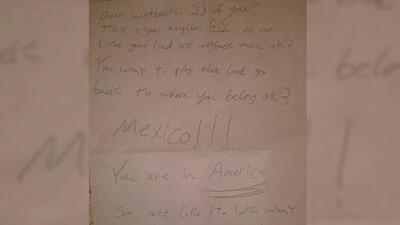 Dear wetbacks, 23 of you?
This is your neighbor 615, no one
likes your loud ass wetback music ok?
You want to play that loud go
back to where you belong ok?
Mexico!!!
You are in America
So act like it. We won?